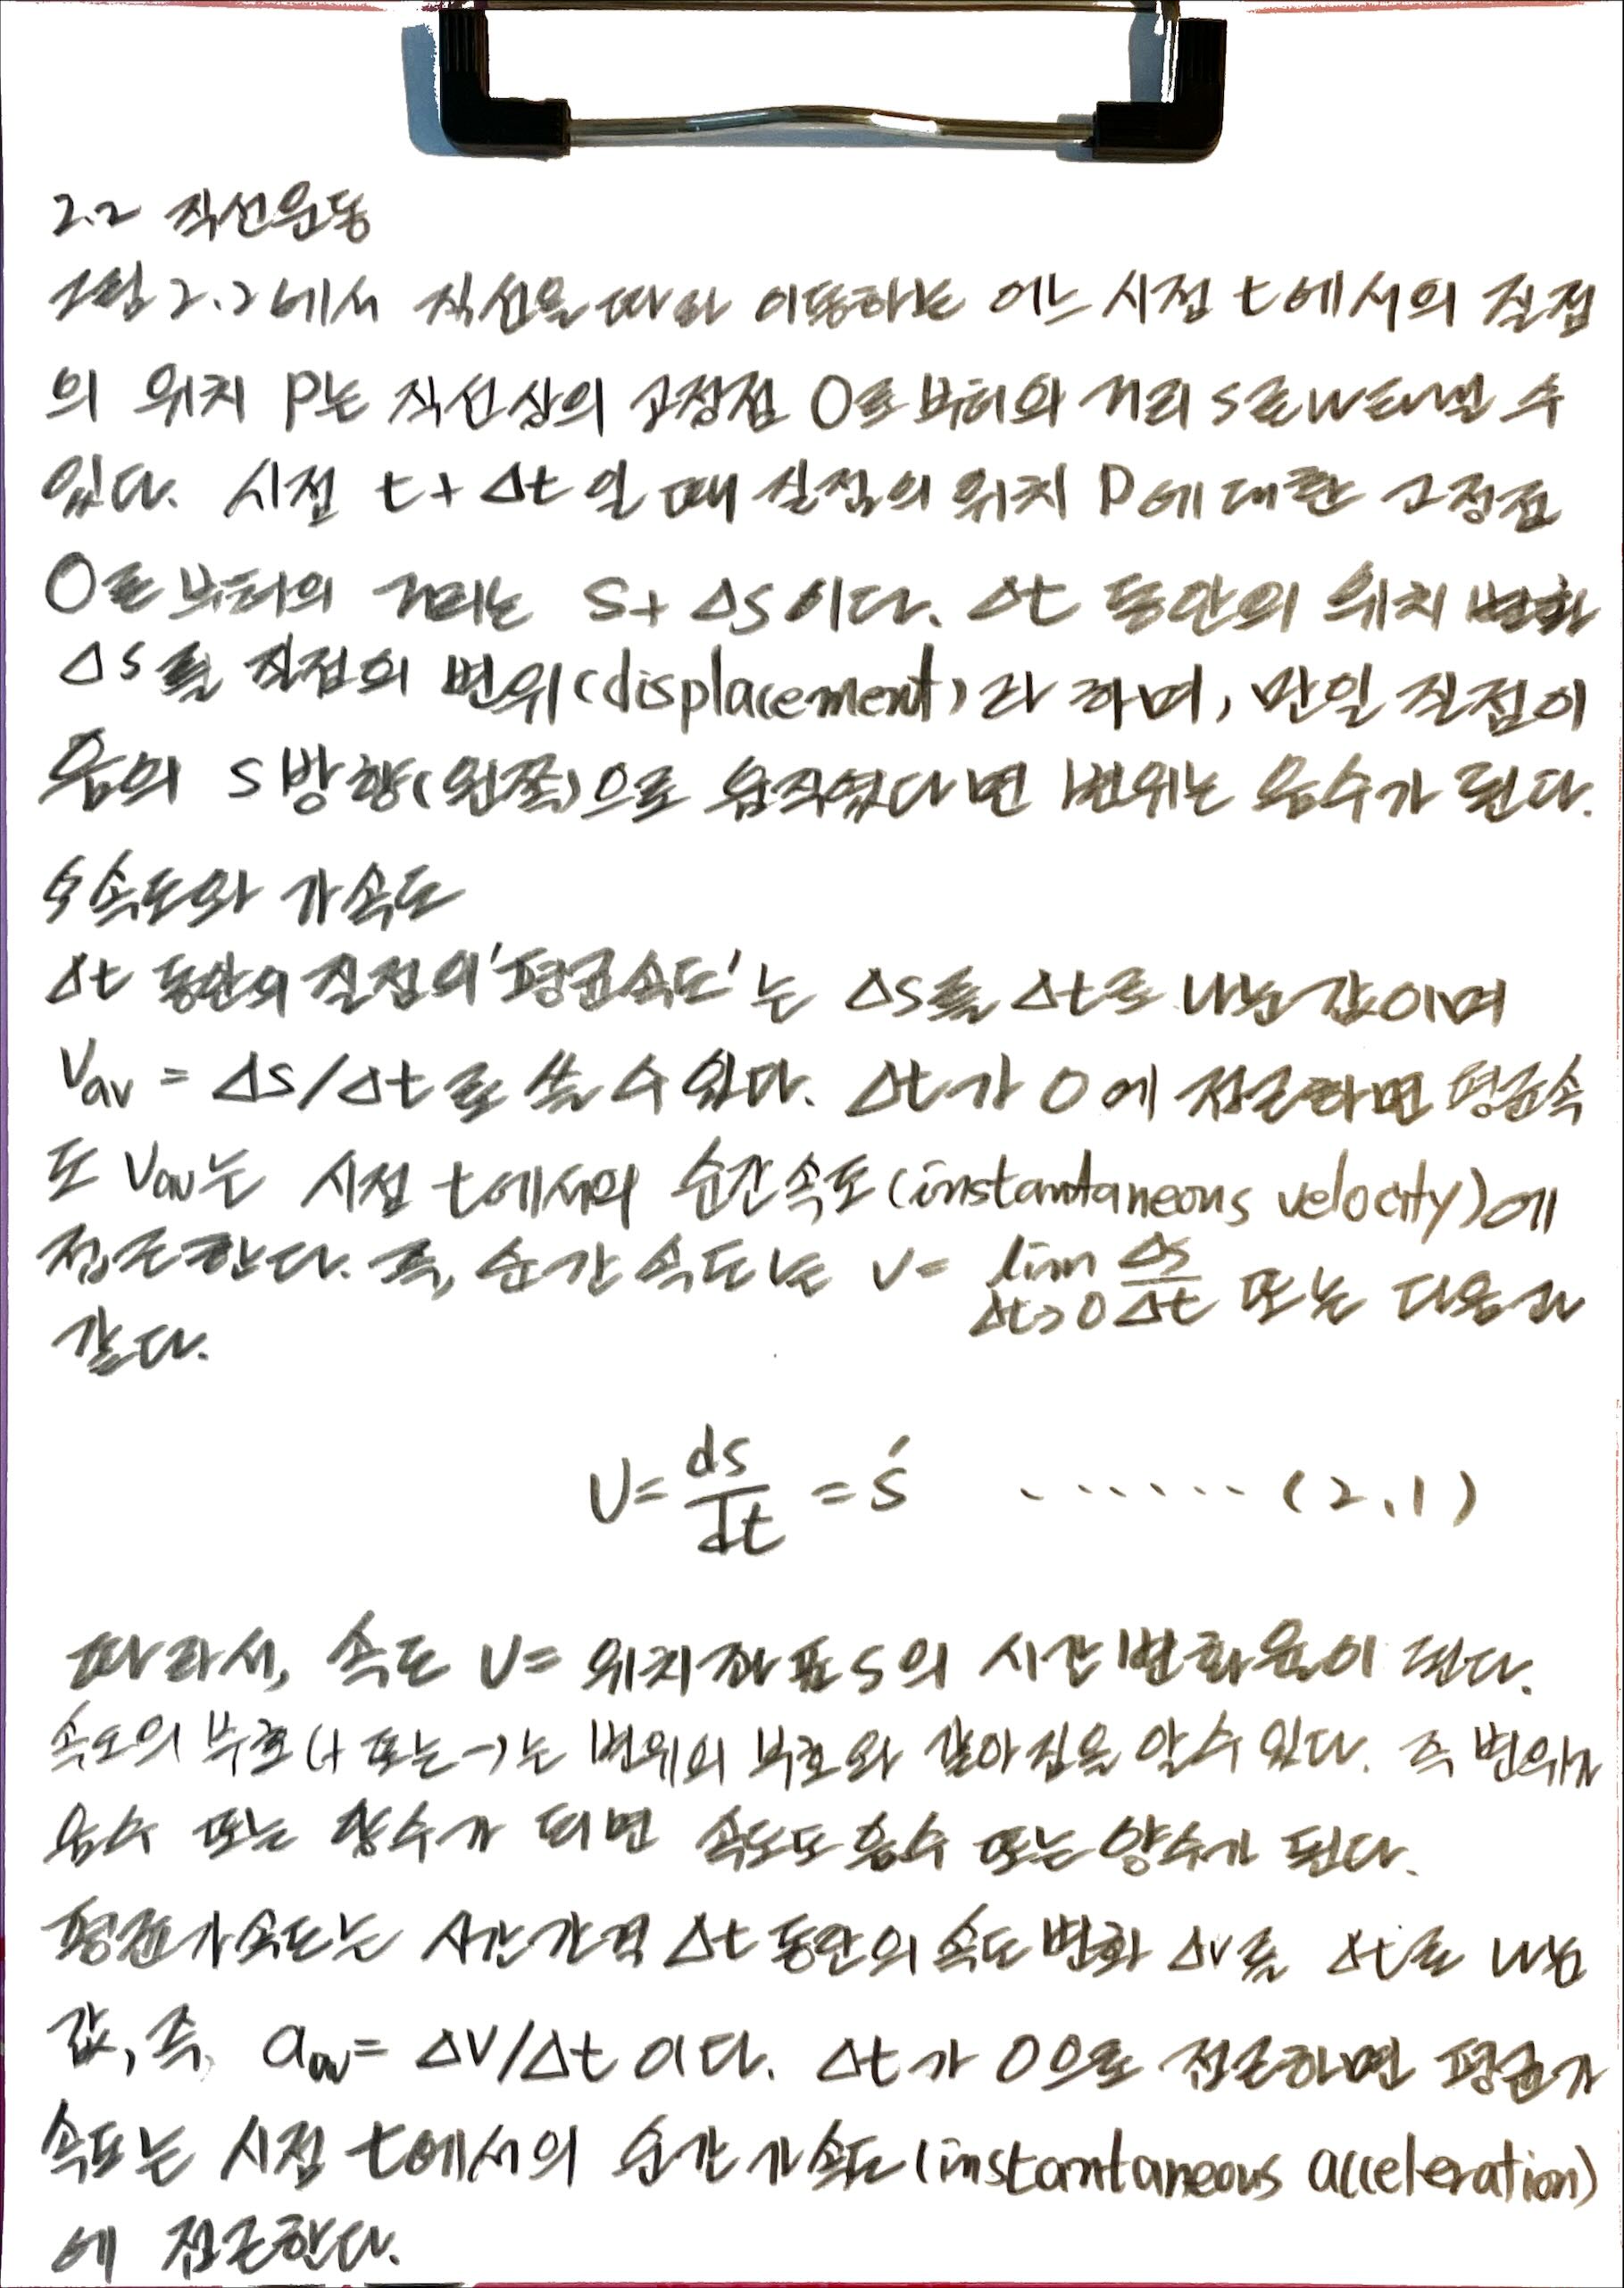 2.2 직선운동
그림 2.2에서 직선을 따라 이동하는 어느 시점 t에서의 질점
의 위치 P는 직선상의 고정점 O로부터의 거리 s로 나타낼 수
있다. 시점 t+Δt일 때 질점의 위치 P에 대한 고정점
O로부터의 거리는 S+ΔS이다. Δt 동안의 위치 변화
ΔS를 질점의 변위(displacement)라 하며, 만일 질점이
음의 S방향(왼쪽)으로 움직였다면 변위는 음수가 된다.
속도와 가속도
Δt 동안의 질점의 '평균속도'는 ΔS를 Δt로 나눈 값이며
Vav = ΔS/Δt로 쓸 수 있다. Δt가 0에 접근하면 평균속
도 Vav는 시점 t에서의 순간속도(instantaneous velocity)에
접근한다. 즉, 순간속도는 v= lim Δt→0 Δs/Δt 또는 다음과
같다.
v= ds/dt = ṡ ....... (2.1)
따라서, 속도 v= 위치좌표 s의 시간변화율이 된다.
속도의 부호(+ 또는 -)는 변위의 부호와 같아짐을 알 수 있다. 즉 변위가
음수 또는 양수가 되면 속도도 음수 또는 양수가 된다.
평균가속도는 시간간격 Δt 동안의 속도변화 Δv를 Δt로 나눈
값, 즉, aav= ΔV/Δt이다. Δt가 0으로 접근하면 평균가
속도는 시점 t에서의 순간가속도(instantaneous acceleration)
에 접근한다.